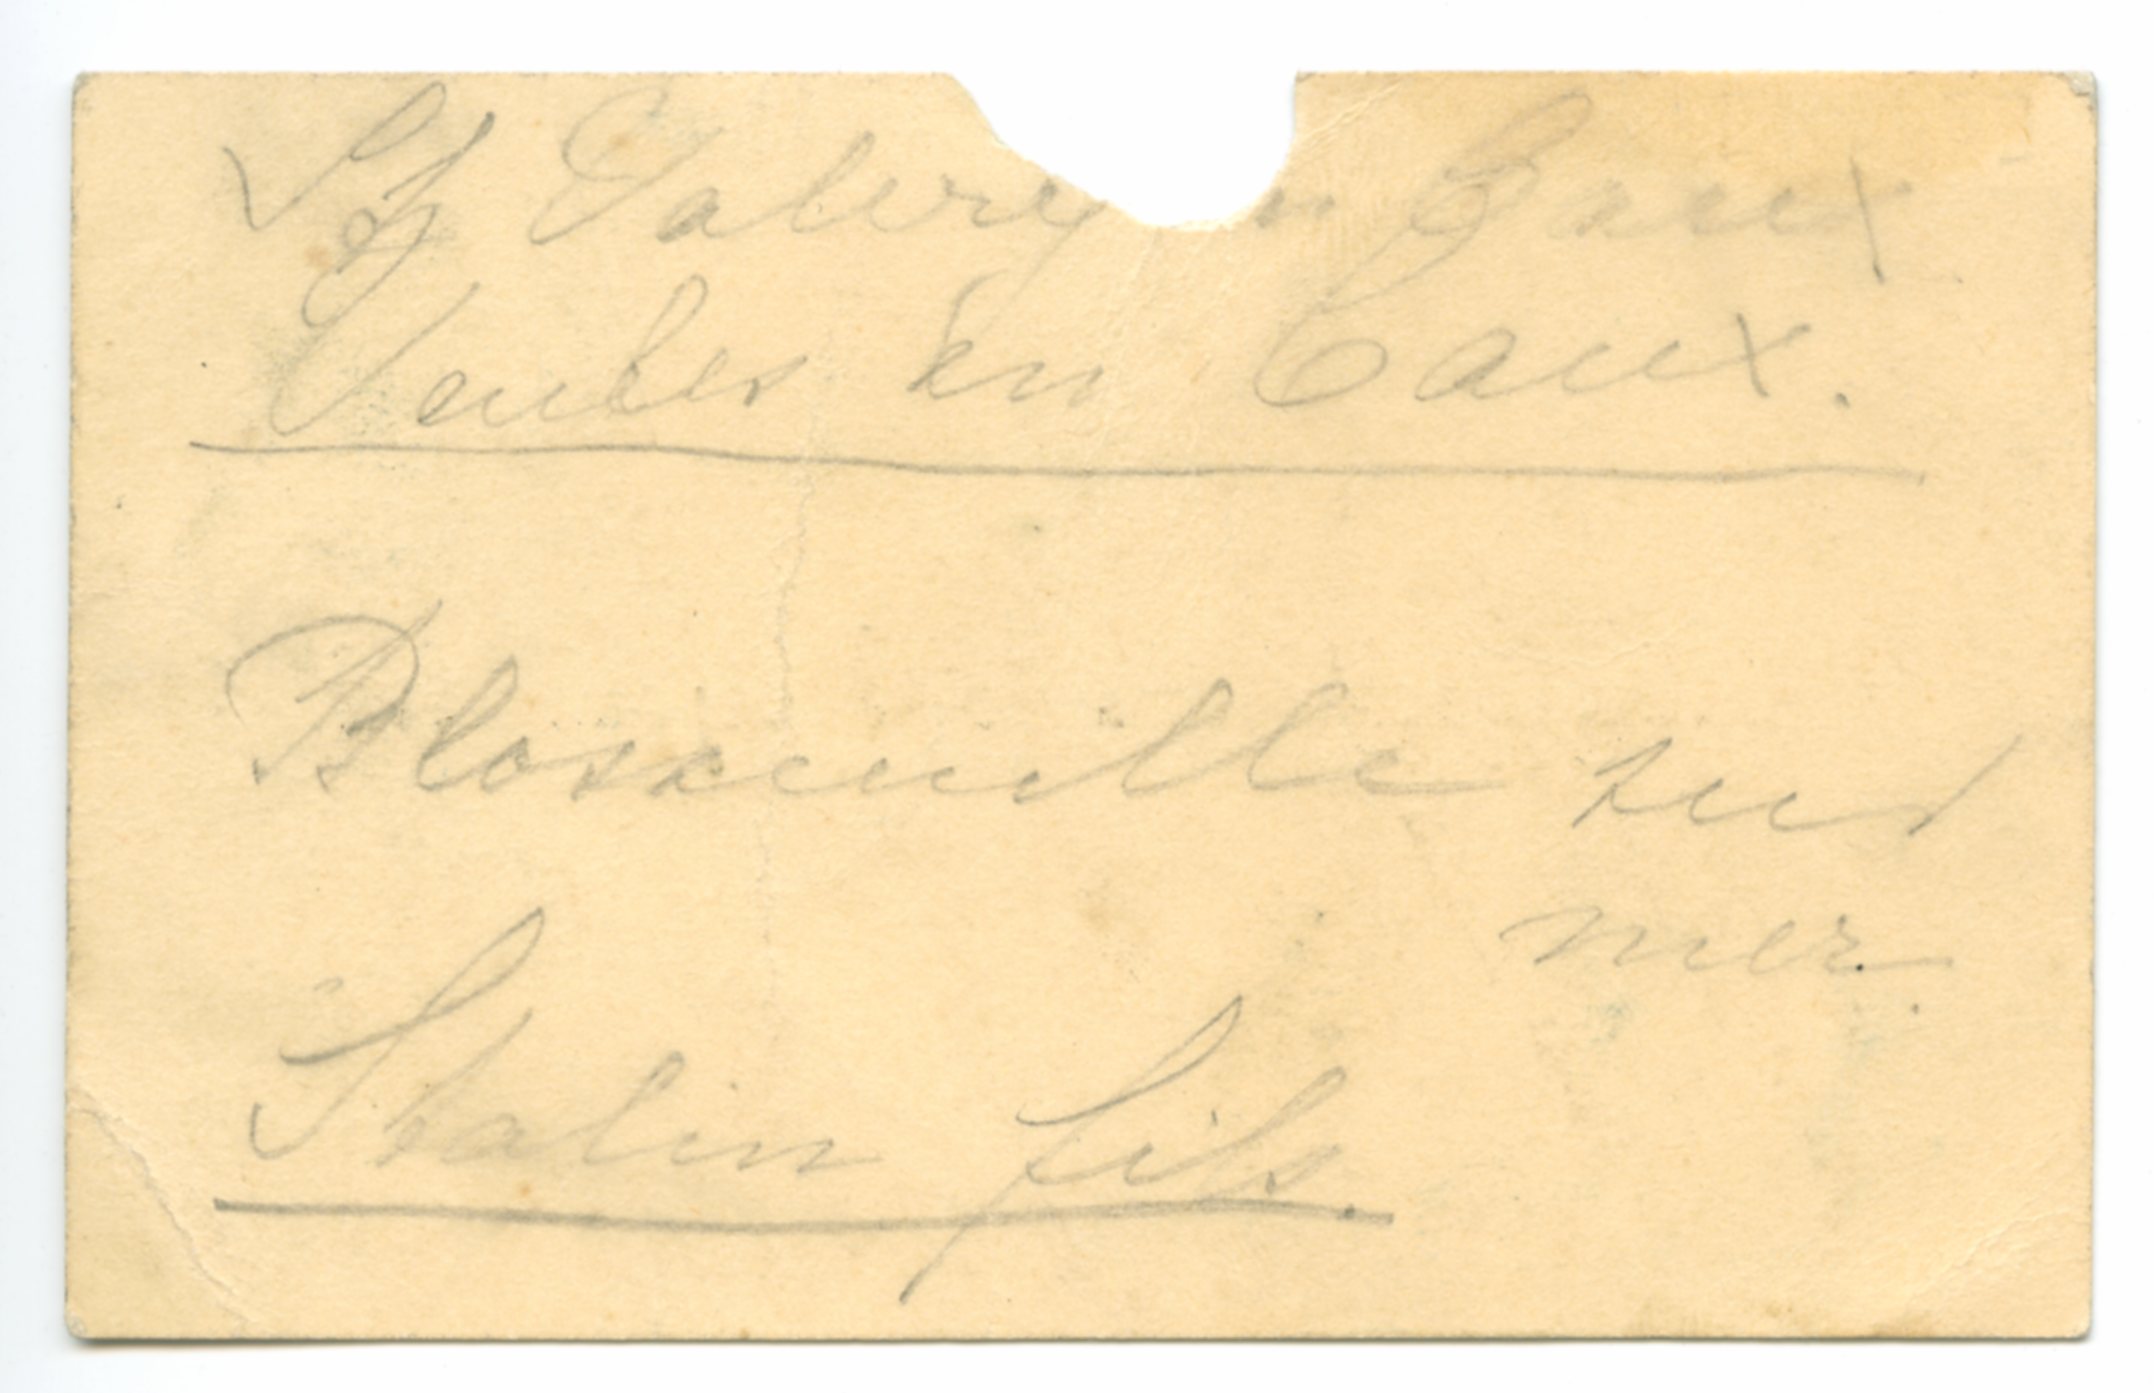 St Valery en Caux
Veules en Caux.
Blosseville sur
mer.
Stalin fils.